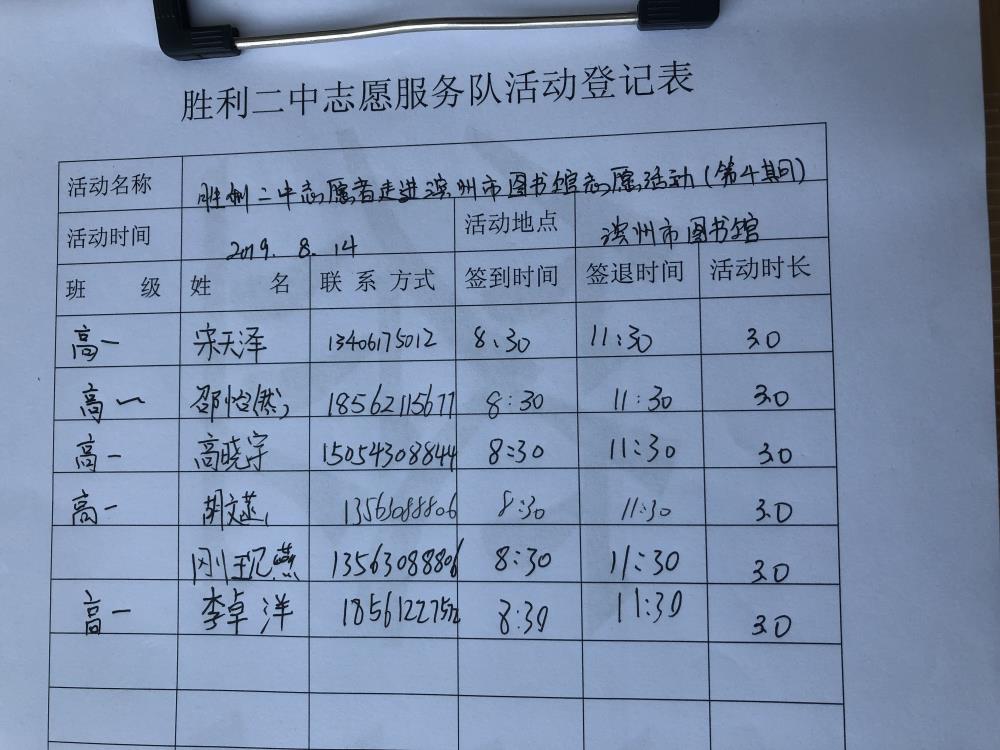 胜利二中志愿服务队活动登记表
活动名称 胜利二中志愿者走进滨州市图书馆志愿活动(第4期)
活动时间 2019.8.14 活动地点 滨州市图书馆
班 级 姓 名 联系方式 签到时间 签退时间 活动时长
高一 宋天泽 13406175012 8:30 11:30 3.0
高一 邵怡然 18562115677 8:30 11:30 3.0
高一 高晓宇 15054308844 8:30 11:30 3.0
高一 胡文 13563088806 8:30 11:30 3.0
13563088806 8:30 11:30 3.0
高一 李卓洋 8:30 11:30 3.0